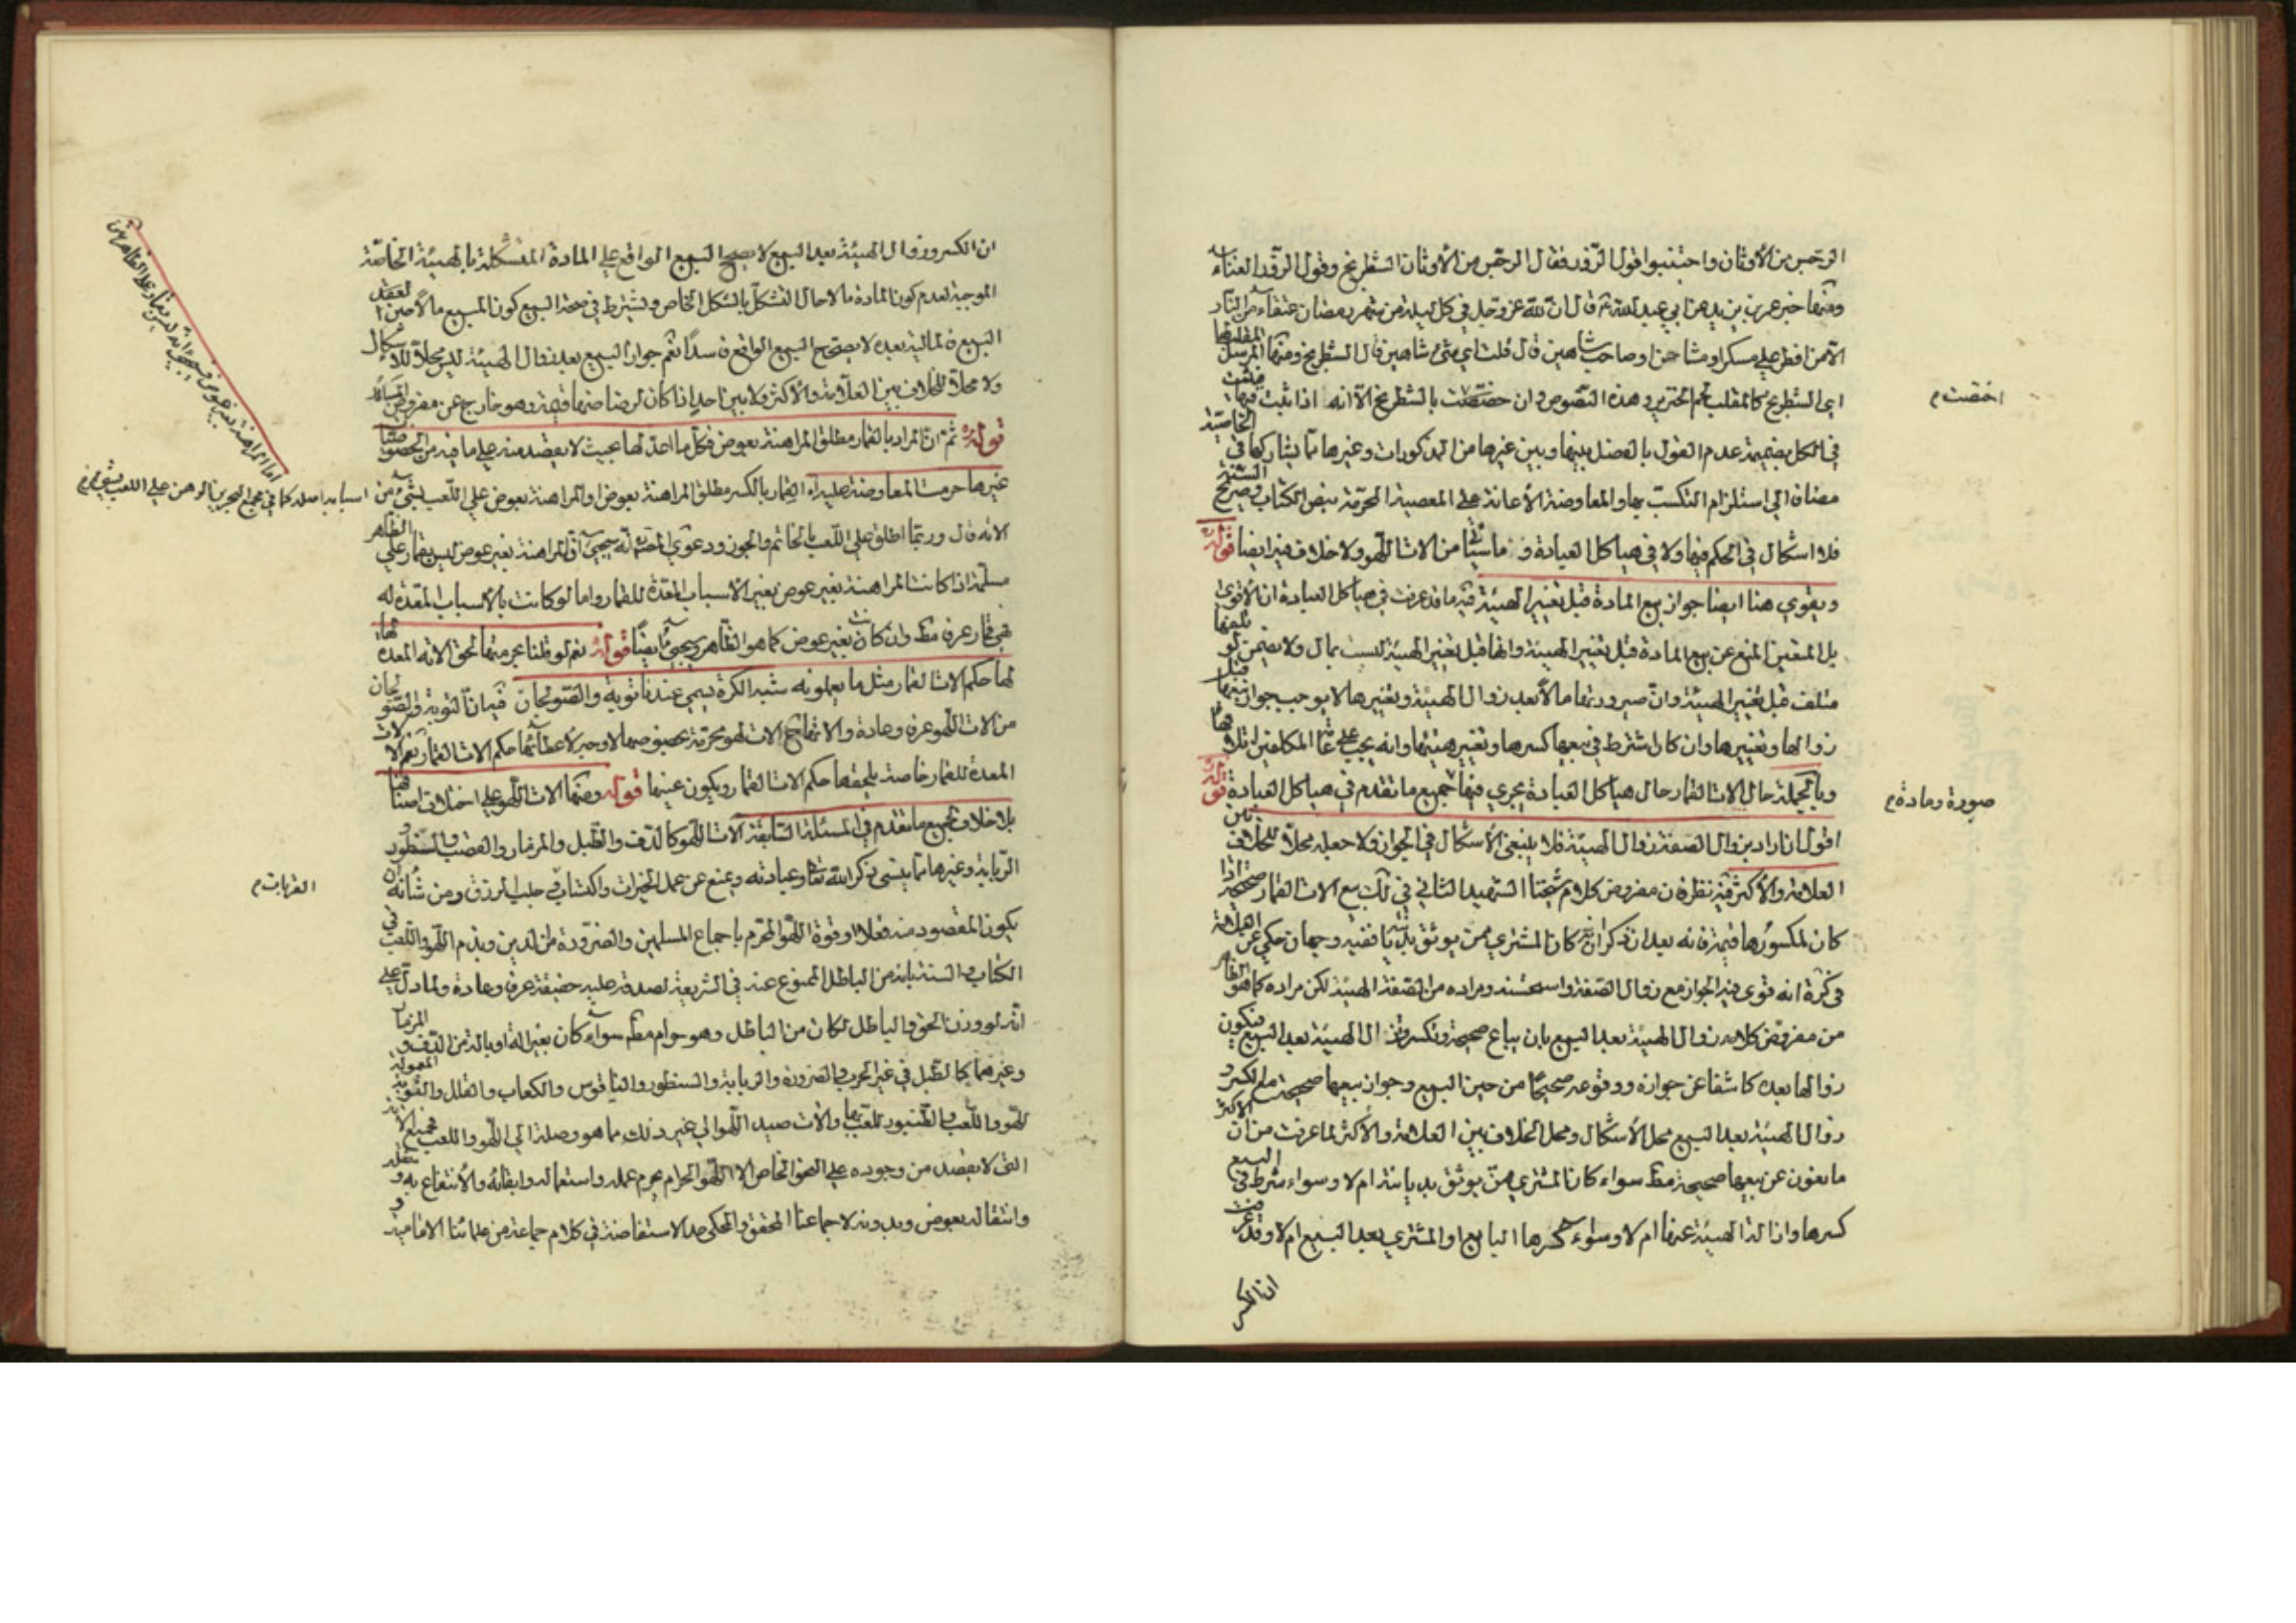 الرجس من الأوثان واجتنبوا قول الزور فقال الرجس من الأوثان الشطرنج وقول الزور الغناء
ومنها خبر عمر بن يزيد عن ابي عبد الله ع قال ان لله عز وجل في كل ليلة من شهر رمضان عتقاء من النار
الا من افطر على مسكر او مشاحن او صاحب شاهين قال قلت اي شيء شاهين قال الشطرنج ومنها المرسل المقلب لها
اي الشطرنج كالمقلب لحم الخنزير وهذه النصوص وان خصّصت بالشطرنج الا انه اذا ثبت فيها فيثبت
اختصت م
في الكل بضميمة عدم القول بالفصل بينها وبين غيرها من المذكورات وغيرها مما يشاركها في الخاصية
مضافا الى استلزام التكسب بها والمعاوضة الأعانة على المعصية المحرمة بنص الكتاب وصريح السنة
فلا اشكال في الحكم فيها ولا في هياكل العبادة و ما سيأتي من الات اللهو ولا خلاف فيه ايضا قوله
ويقوي هنا ايضا جواز بيع المادة قبل تغيير الهيئة فيه ما قد عرفت في هياكل العبادة ان الأقوى
بل المتعين المنع عن بيع المادة قبل تغيير الهيئة وانها قبل تغيير الهيئة ليست بمال ولا يضمن لو تلفها
متلف قبل تغيير الهيئة وان صيرورتها مالا بعد زوال الهيئة وتغييرها لا يوجب جواز بيعها قبل
زوالها وتغييرها وان كان اشترط في بيعها كسرها وتغيير هيئتها وانه يجب على المكلفين اتلافها
صورة ومادة م
وبالجملة حال الات القمار حال هياكل العبادة يجري فيها جميع ما تقدم في هياكل العبادة قوله
اقول ان اراد بزوال الصفة زوال الهيئة فلا ينبغي الأشكال في الجواز ولا جعله محلا للخلاف بين
العلامة والأكثر فيه نظر فان مفروض كلام شيخنا الشهيد الثاني في لك بيع الات القمار صحيحة اذا
كان لمكسورها قيمة فانه بعد ان ذكر انه كان المشتري ممن يوثق بديانته ففيه وجهان حكي عن العلامة
في كرة انه قوى فيه الجواز مع زوال الصفة واستحسنه ومراده من الصفة الهيئة لكن مراده كما هو الظاهر
من مفروض كلامه زوال الهيئة بعد البيع بان يباع صحيحة وتكسر وتزال الهيئة بعد البيع فيكون
زوالها بعده كاشفا عن جوازه ووقوعه صحيحا من حين البيع وجواز بيعها صحيحة ثم الكسر و
زوال الهيئة بعد البيع محل الأشكال ومحل الخلاف بين العلامة والأكثر لما عرفت من ان الأكثر
مانعون عن بيعها صحيحة مط سواء كان المشتري ممن يوثق بديانته ام لا وسواء شرط في البيع
كسرها وازالة الهيئة عنها ام لا وسواء كسرها البايع او المشتري بعد البيع ام لا وقد عرفت
ان الكسر
ان الكسر وزوال الهيئة بعد البيع لا يصحح البيع الواقع على المادة المتشكلة بالهيئة الخاصة
الموجبة لعدم كون المادة مالا حال التشكل بالشكل الخاص ويشترط في صحة البيع كون المبيع مالا حين العقد
البيع فالمالية بعده لا يصحح البيع الواقع فاسدا نعم جواز البيع بعد زوال الهيئة ليس محلا للاشكال
ولا محلا للخلاف بين العلامة والأكثر ولا بين احد اذا كان لرضاضها قيمة وهو خارج عن مفروض المسألة
قوله ثم ان المراد بالقمار مطلق المراهنة بعوض فكل ما اعد لها بحيث لا يقصد منه على ما فيه من الخصوصيات
غيرها حرمت المعاوضة عليه القمار بالكسر مطلق المراهنة بعوض او المراهنة بعوض على اللعب بشيء من
اسبابه اصله كما في مجمع البحرين الرهن على اللعب بشيء م
اما المراهنة بغير عوض فسيجيء انه ليس بقمار على الظاهر
الآته قال وربما اطلق على اللعب بالخاتم والجوز ودعوى المصنف انه سيجيء ان المراهنة بغير عوض ليس بقمار على الظاهر
مسلمة اذا كانت المراهنة بغير عوض بغير الأسباب المعدة للقمار واما لو كانت بالأسباب المعدة له
فهي قمار عرفا مط وان كانت بغير عوض كما هو الظاهر وسيجيء ايضا قوله نعم لو قلنا بحرمتها لحق الآلة المعدة لها
لها حكم الات القمار مثل ما يعملونه شبه الكرة يسمى عندنا توبة والصولجان فيه ان التوبة والصولجان
من الات اللهو عرفا وعادة والاجماع الات لهو محرمة بخصوصها لا وجه لأعطائها حكم الات القمار نعم الآلات
المعدة للقمار خاصة يلحقها حكم الات القمار ويكون عينها قوله ومنها الات اللهو على اختلاف اصنافها
بلا خلاف لجميع ما تقدم في المسئلة السابقة الات اللهو كالدف والطبل والمزمار والقصب والسنطور و
الربابة وغيرها مما ينسي ذكر الله تعالى وعبادته ويمنع عن عمل الخيرات واكتساب في طلب الرزق ومن شأنه ان
القربات م
يكون المقصود منه فعلا او قوة اللهو المحرم باجماع المسلمين والضرورة من الدين وبذم اللهو واللعب في
الكتاب والسنة بانه من الباطل الممنوع عنه في الشريعة لصدقه عليه حقيقة عرفا وعادة ولما دل على
انه لو وزن الحق والباطل لكان من الباطل وهو حرام مط سواء كان بغير الة او بالة من الدف و المزمار
وغيرهما كالطبل في غير الحرب والضرورة والربابة والسنطور والناقوس والكعاب والقلل والتوبة المعمولة
للهو واللعب والطنبور للعب والات صيد اللهو الى غير ذلك مما هو وصلة الى اللهو واللعب فجميع الآلة
التي لا يقصد من وجوده على النحو الخاص الا اللهو الحرام يحرم عمله واستعماله وابقائه والأنتفاع به و نقله
وانتقاله بعوض وبدونه لاجماعنا المحقق والمحكي حد الاستفاضة في كلام جماعة من علمائنا الامامية